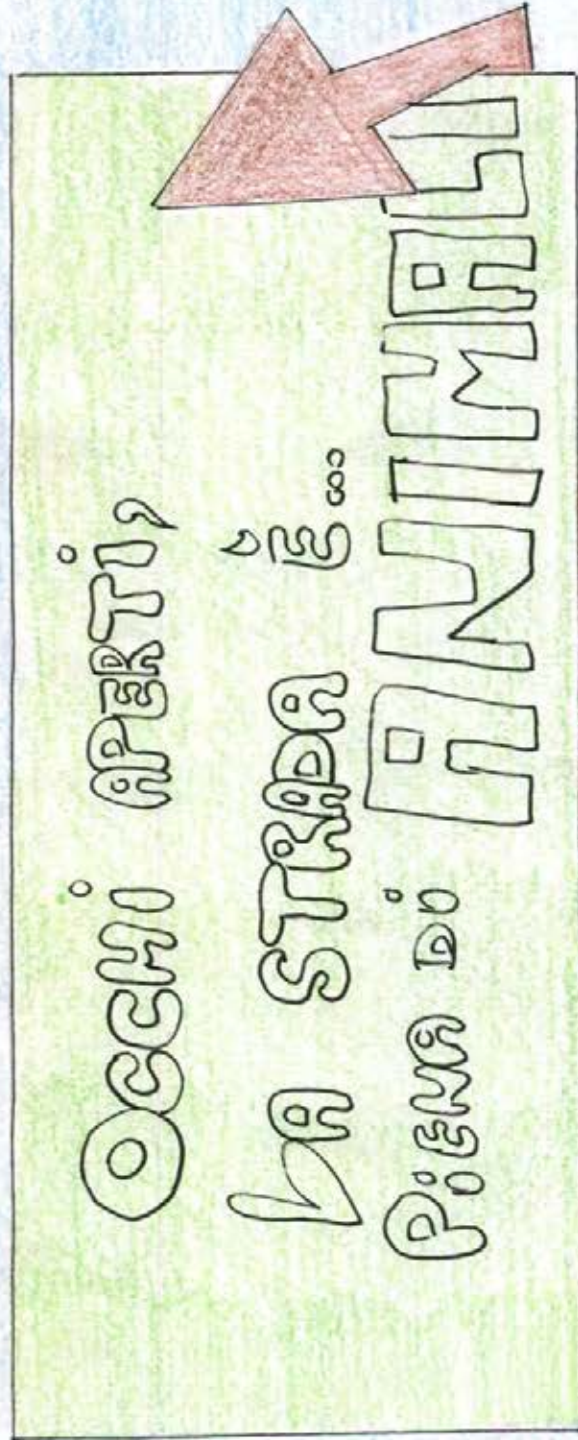 OCCHI APERTI,
LA STRADA È...
PIENA DI ANIMALI